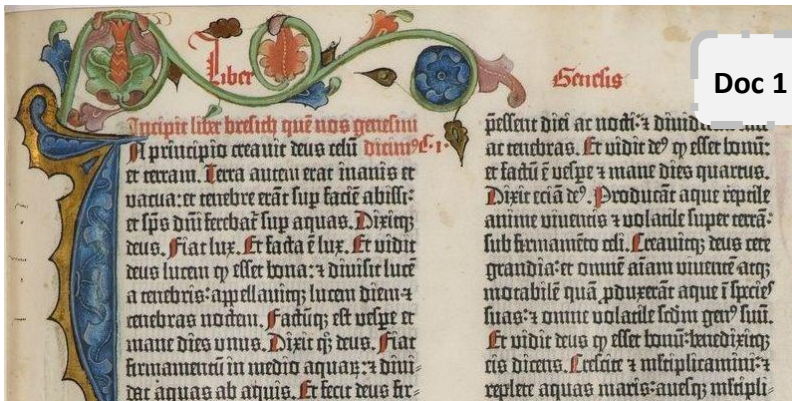 Liber
Genesis
Doc 1
Incipit liber bresich quē nos genesim
dicim⁹ C·1·
In principio creauit deus celū
et terram. Terra autem erat inanis et
vacua: et tenebre erāt sup faciē abissi:
et sp̄s dn̄i ferebat̄ sup aquas. Dixitqꝫ
deus. Fiat lux. Et facta ē lux. Et vidit
deus lucem ꝙ esset bona: ⁊ diuisit lucē
a tenebris: appellauitqꝫ lucem diem ⁊
tenebras noctem. Factūqꝫ est vespe et
mane dies vnus. Dixit qꝫ deus. Fiat
firmamentū in medio aquaꝝ: ⁊ diui⸗
dat aquas ab aquis. Et fecit deus fir⸗
p̄essent diei ac nocti: ⁊
ac tenebras. Et vidit de⁹ ꝙ esset bonū:
et factū ē vespe ⁊ mane dies quartus.
Dixit eciā de⁹. Producāt aque reptile
anime viuentis ⁊ volatile super terrā:
sub firmamēto celi. Creauitqꝫ deus cete
grandia: et omnē aīam viuentē atqꝫ
motabilē quā ꝓduxerāt aque ī species
suas: ⁊ omne volatile scdm gen⁹ suū.
Et vidit deus ꝙ esset bonū: benedixitqꝫ
eis dicens. Crescite ⁊ mltiplicamini: ⁊
replete aquas maris: auesqꝫ mltipli⸗